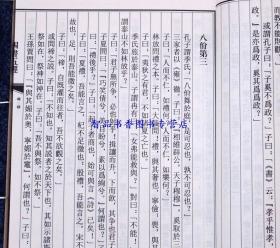 或謂孔子曰：「子奚不爲政？」子曰：「《書》云：『孝乎惟孝，
政。』是亦爲政，奚其爲爲政？」
八佾第三
孔子謂季氏：「八佾舞於庭，是可忍也，孰不可忍也！」
三家者以《雍》徹。子曰：「『相維辟公，天子穆穆』，奚取於
子曰：「人而不仁，如禮何？人而不仁，如樂何？」
林放問禮之本。子曰：「大哉問！禮，與其奢也，寧儉；喪，與
子曰：「夷狄之有君，不如諸夏之亡也。」
季氏旅於泰山。子謂冉有曰：
謂泰山不如林放乎？」
子曰：「君子無所爭。必也射乎！揖讓而升，下而飲。其爭也
子夏問曰：「『巧笑倩兮，美目盼兮，素以爲絢兮』，何謂也？」
子曰：「起予者商也！始可與言《詩》已矣。」
子曰：「夏禮，吾能言之，杞不足徵也；殷禮，吾能言之，宋不
故也。足，則吾能徵之矣。」
子曰：「禘，自既灌而往者，吾不欲觀之矣。」
或問禘之說。子曰：「不知也。知其說者之於天下也，其如示諸斯
祭如在，祭神如神在。子曰：「吾不與祭，如不祭。」
王孫賈問曰：「『與其媚於奧，寧媚於竈』，何謂也？」子曰：